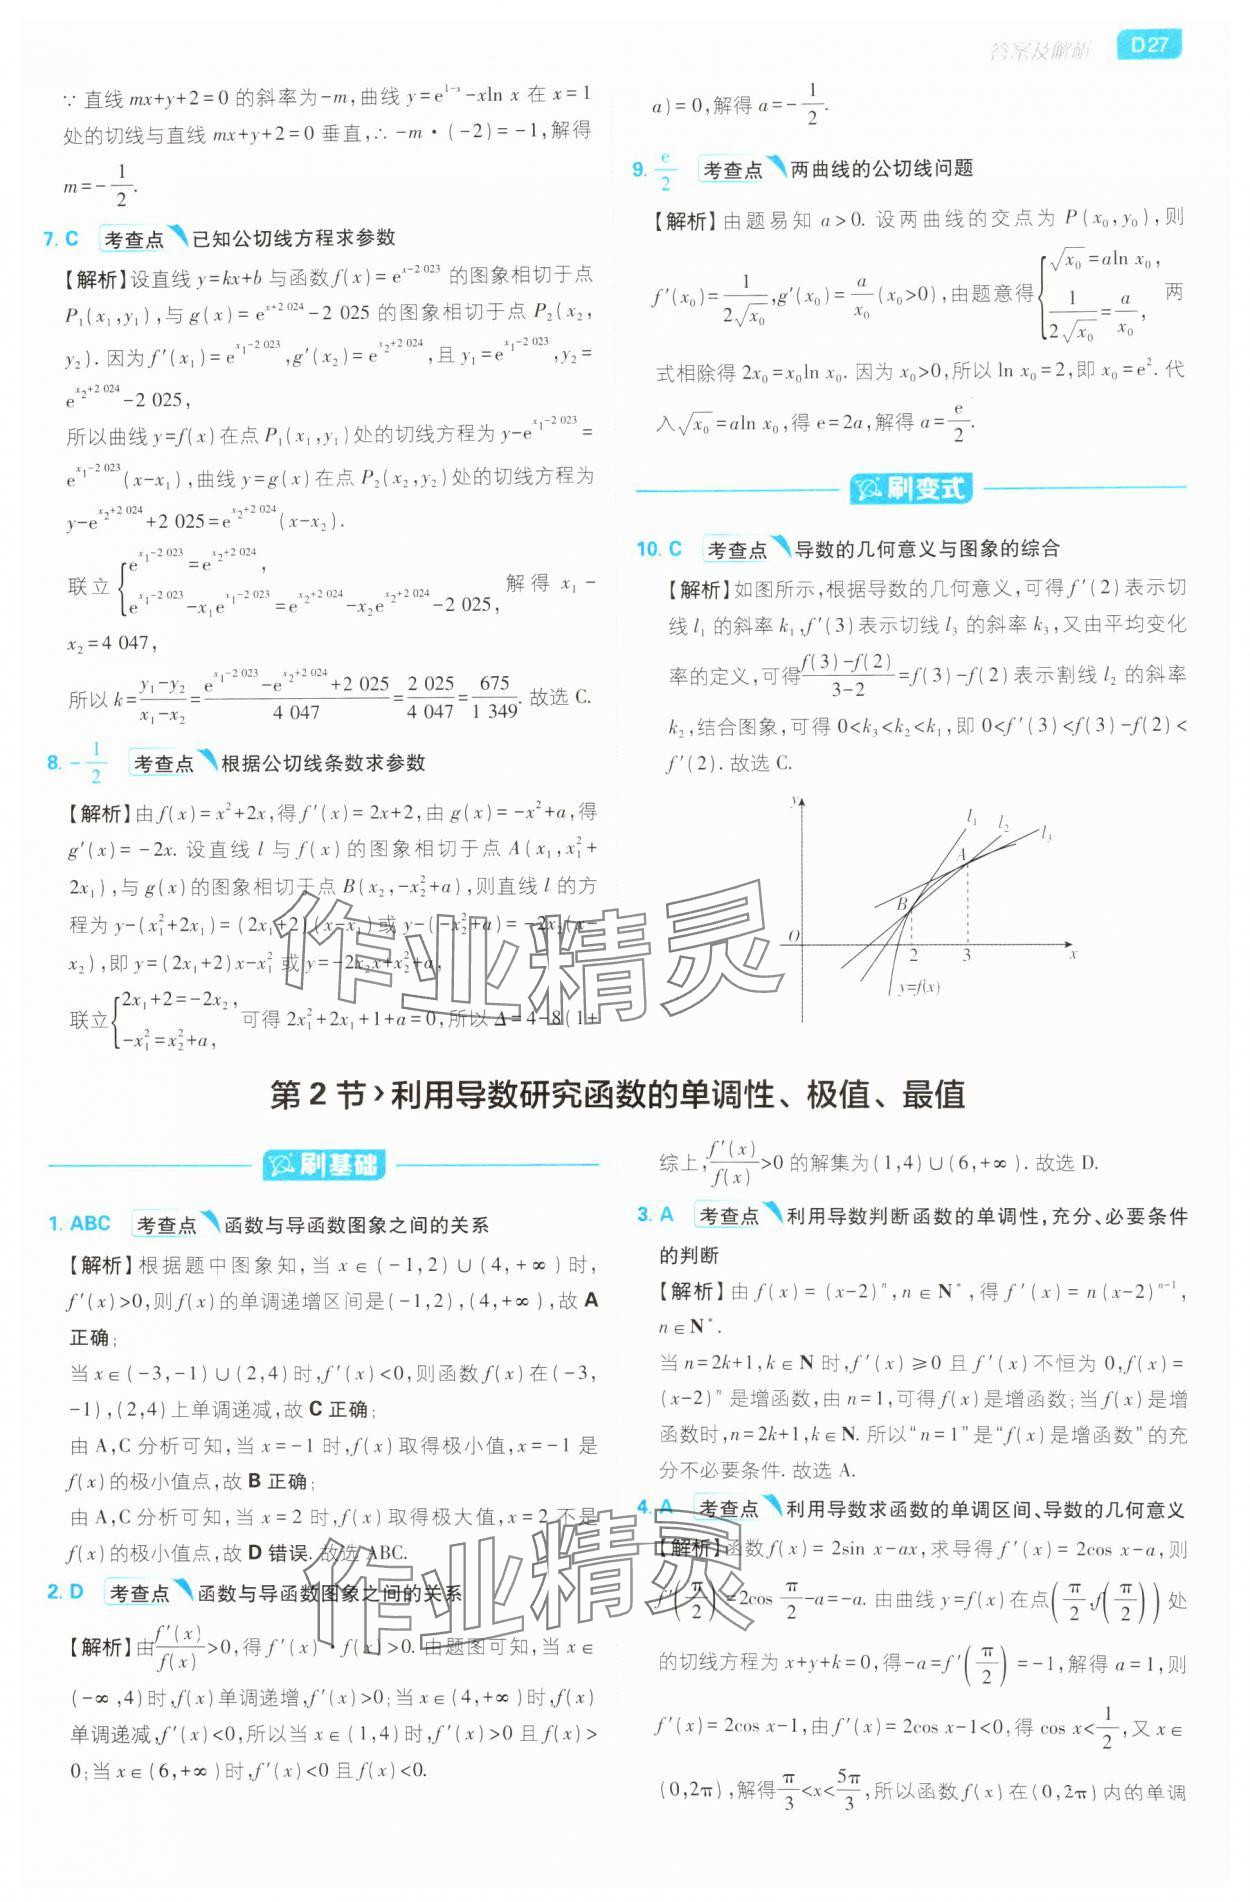 答案及解析 D27
∵ 直线 mx+y+2=0 的斜率为-m,曲线 y=e^{1-x}-xln x 在 x=1
处的切线与直线 mx+y+2=0 垂直,∴ -m·(-2)=-1,解得
m=-\frac{1}{2}.
7. C 考查点 已知公切线方程求参数
【解析】设直线 y=kx+b 与函数 f(x)=e^{x-2 023} 的图象相切于点
P₁(x₁,y₁),与 g(x)=e^{x+2 024}-2 025 的图象相切于点 P₂(x₂,
y₂). 因为 f′(x₁)=e^{x₁-2 023},g′(x₂)=e^{x₂+2 024},且 y₁=e^{x₁-2 023},y₂=
e^{x₂+2 024}-2 025,
所以曲线 y=f(x)在点 P₁(x₁,y₁)处的切线方程为 y-e^{x₁-2 023}=
e^{x₁-2 023}(x-x₁),曲线 y=g(x)在点 P₂(x₂,y₂)处的切线方程为
y-e^{x₂+2 024}+2 025=e^{x₂+2 024}(x-x₂).
联立{e^{x₁-2 023}=e^{x₂+2 024},
e^{x₁-2 023}-x₁e^{x₁-2 023}=e^{x₂+2 024}-x₂e^{x₂+2 024}-2 025, 解得 x₁-
x₂=4 047,
所以 k=\frac{y₁-y₂}{x₁-x₂}=\frac{e^{x₁-2 023}-e^{x₂+2 024}+2 025}{4 047}=\frac{2 025}{4 047}=\frac{675}{1 349}. 故选 C.
8. -\frac{1}{2} 考查点 根据公切线条数求参数
【解析】由 f(x)=x²+2x,得 f′(x)=2x+2,由 g(x)=-x²+a,得
g′(x)=-2x. 设直线 l 与 f(x)的图象相切于点 A(x₁,x₁²+
2x₁),与 g(x)的图象相切于点 B(x₂,-x₂²+a),则直线 l 的方
程为 y-(x₁²+2x₁)=(2x₁+2)(x-x₁)或 y-(-x₂²+a)=-2x₂(x-
x₂),即 y=(2x₁+2)x-x₁² 或 y=-2x₂x+x₂²+a,
联立{2x₁+2=-2x₂,
-x₁²=x₂²+a, 可得 2x₁²+2x₁+1+a=0,所以 Δ=4-8(1+
a)=0,解得 a=-\frac{1}{2}.
9. \frac{e}{2} 考查点 两曲线的公切线问题
【解析】由题易知 a>0. 设两曲线的交点为 P(x₀,y₀),则
f′(x₀)=\frac{1}{2\sqrt{x₀}},g′(x₀)=\frac{a}{x₀}(x₀>0),由题意得{\sqrt{x₀}=aln x₀,
\frac{1}{2\sqrt{x₀}}=\frac{a}{x₀}, 两
式相除得 2x₀=x₀ln x₀. 因为 x₀>0,所以 ln x₀=2,即 x₀=e². 代
入\sqrt{x₀}=aln x₀,得 e=2a,解得 a=\frac{e}{2}.
刷变式
10. C 考查点 导数的几何意义与图象的综合
【解析】如图所示,根据导数的几何意义,可得 f′(2)表示切
线 l₁ 的斜率 k₁,f′(3)表示切线 l₃ 的斜率 k₃,又由平均变化
率的定义,可得\frac{f(3)-f(2)}{3-2}=f(3)-f(2)表示割线 l₂ 的斜率
k₂,结合图象,可得 0<k₃<k₂<k₁,即 0<f′(3)<f(3)-f(2)<
f′(2). 故选 C.
y
l₁ l₂ l₃
A
B
O 2 3 x
y=f(x)
作业精灵
第 2 节 › 利用导数研究函数的单调性、极值、最值
刷基础
1. ABC 考查点 函数与导函数图象之间的关系
【解析】根据题中图象知,当 x∈(-1,2)∪(4,+∞)时,
f′(x)>0,则 f(x)的单调递增区间是(-1,2),(4,+∞),故 A
正确;
当 x∈(-3,-1)∪(2,4)时,f′(x)<0,则函数 f(x)在(-3,
-1),(2,4)上单调递减,故 C 正确;
由 A,C 分析可知,当 x=-1 时,f(x)取得极小值,x=-1 是
f(x)的极小值点,故 B 正确;
由 A,C 分析可知,当 x=2 时,f(x)取得极大值,x=2 不是
f(x)的极小值点,故 D 错误. 故选 ABC.
2. D 考查点 函数与导函数图象之间的关系
【解析】由\frac{f′(x)}{f(x)}>0,得 f′(x)·f(x)>0. 由题图可知,当 x∈
(-∞,4)时,f(x)单调递增,f′(x)>0;当 x∈(4,+∞)时,f(x)
单调递减,f′(x)<0,所以当 x∈(1,4)时,f′(x)>0 且 f(x)>
0;当 x∈(6,+∞)时,f′(x)<0 且 f(x)<0.
综上,\frac{f′(x)}{f(x)}>0 的解集为(1,4)∪(6,+∞). 故选 D.
3. A 考查点 利用导数判断函数的单调性,充分、必要条件
的判断
【解析】由 f(x)=(x-2)ⁿ,n∈N*,得 f′(x)=n(x-2)ⁿ⁻¹,
n∈N*.
当 n=2k+1,k∈N 时,f′(x)≥0 且 f′(x)不恒为 0,f(x)=
(x-2)ⁿ 是增函数,由 n=1,可得 f(x)是增函数;当 f(x)是增
函数时,n=2k+1,k∈N. 所以“n=1”是“f(x)是增函数”的充
分不必要条件. 故选 A.
4. A 考查点 利用导数求函数的单调区间、导数的几何意义
【解析】函数 f(x)=2sin x-ax,求导得 f′(x)=2cos x-a,则
f′(\frac{π}{2})=2cos \frac{π}{2}-a=-a. 由曲线 y=f(x)在点(\frac{π}{2},f(\frac{π}{2}))处
的切线方程为 x+y+k=0,得-a=f′(\frac{π}{2})=-1,解得 a=1,则
f′(x)=2cos x-1,由 f′(x)=2cos x-1<0,得 cos x<\frac{1}{2},又 x∈
(0,2π),解得\frac{π}{3}<x<\frac{5π}{3},所以函数 f(x)在(0,2π)内的单调
作业精灵